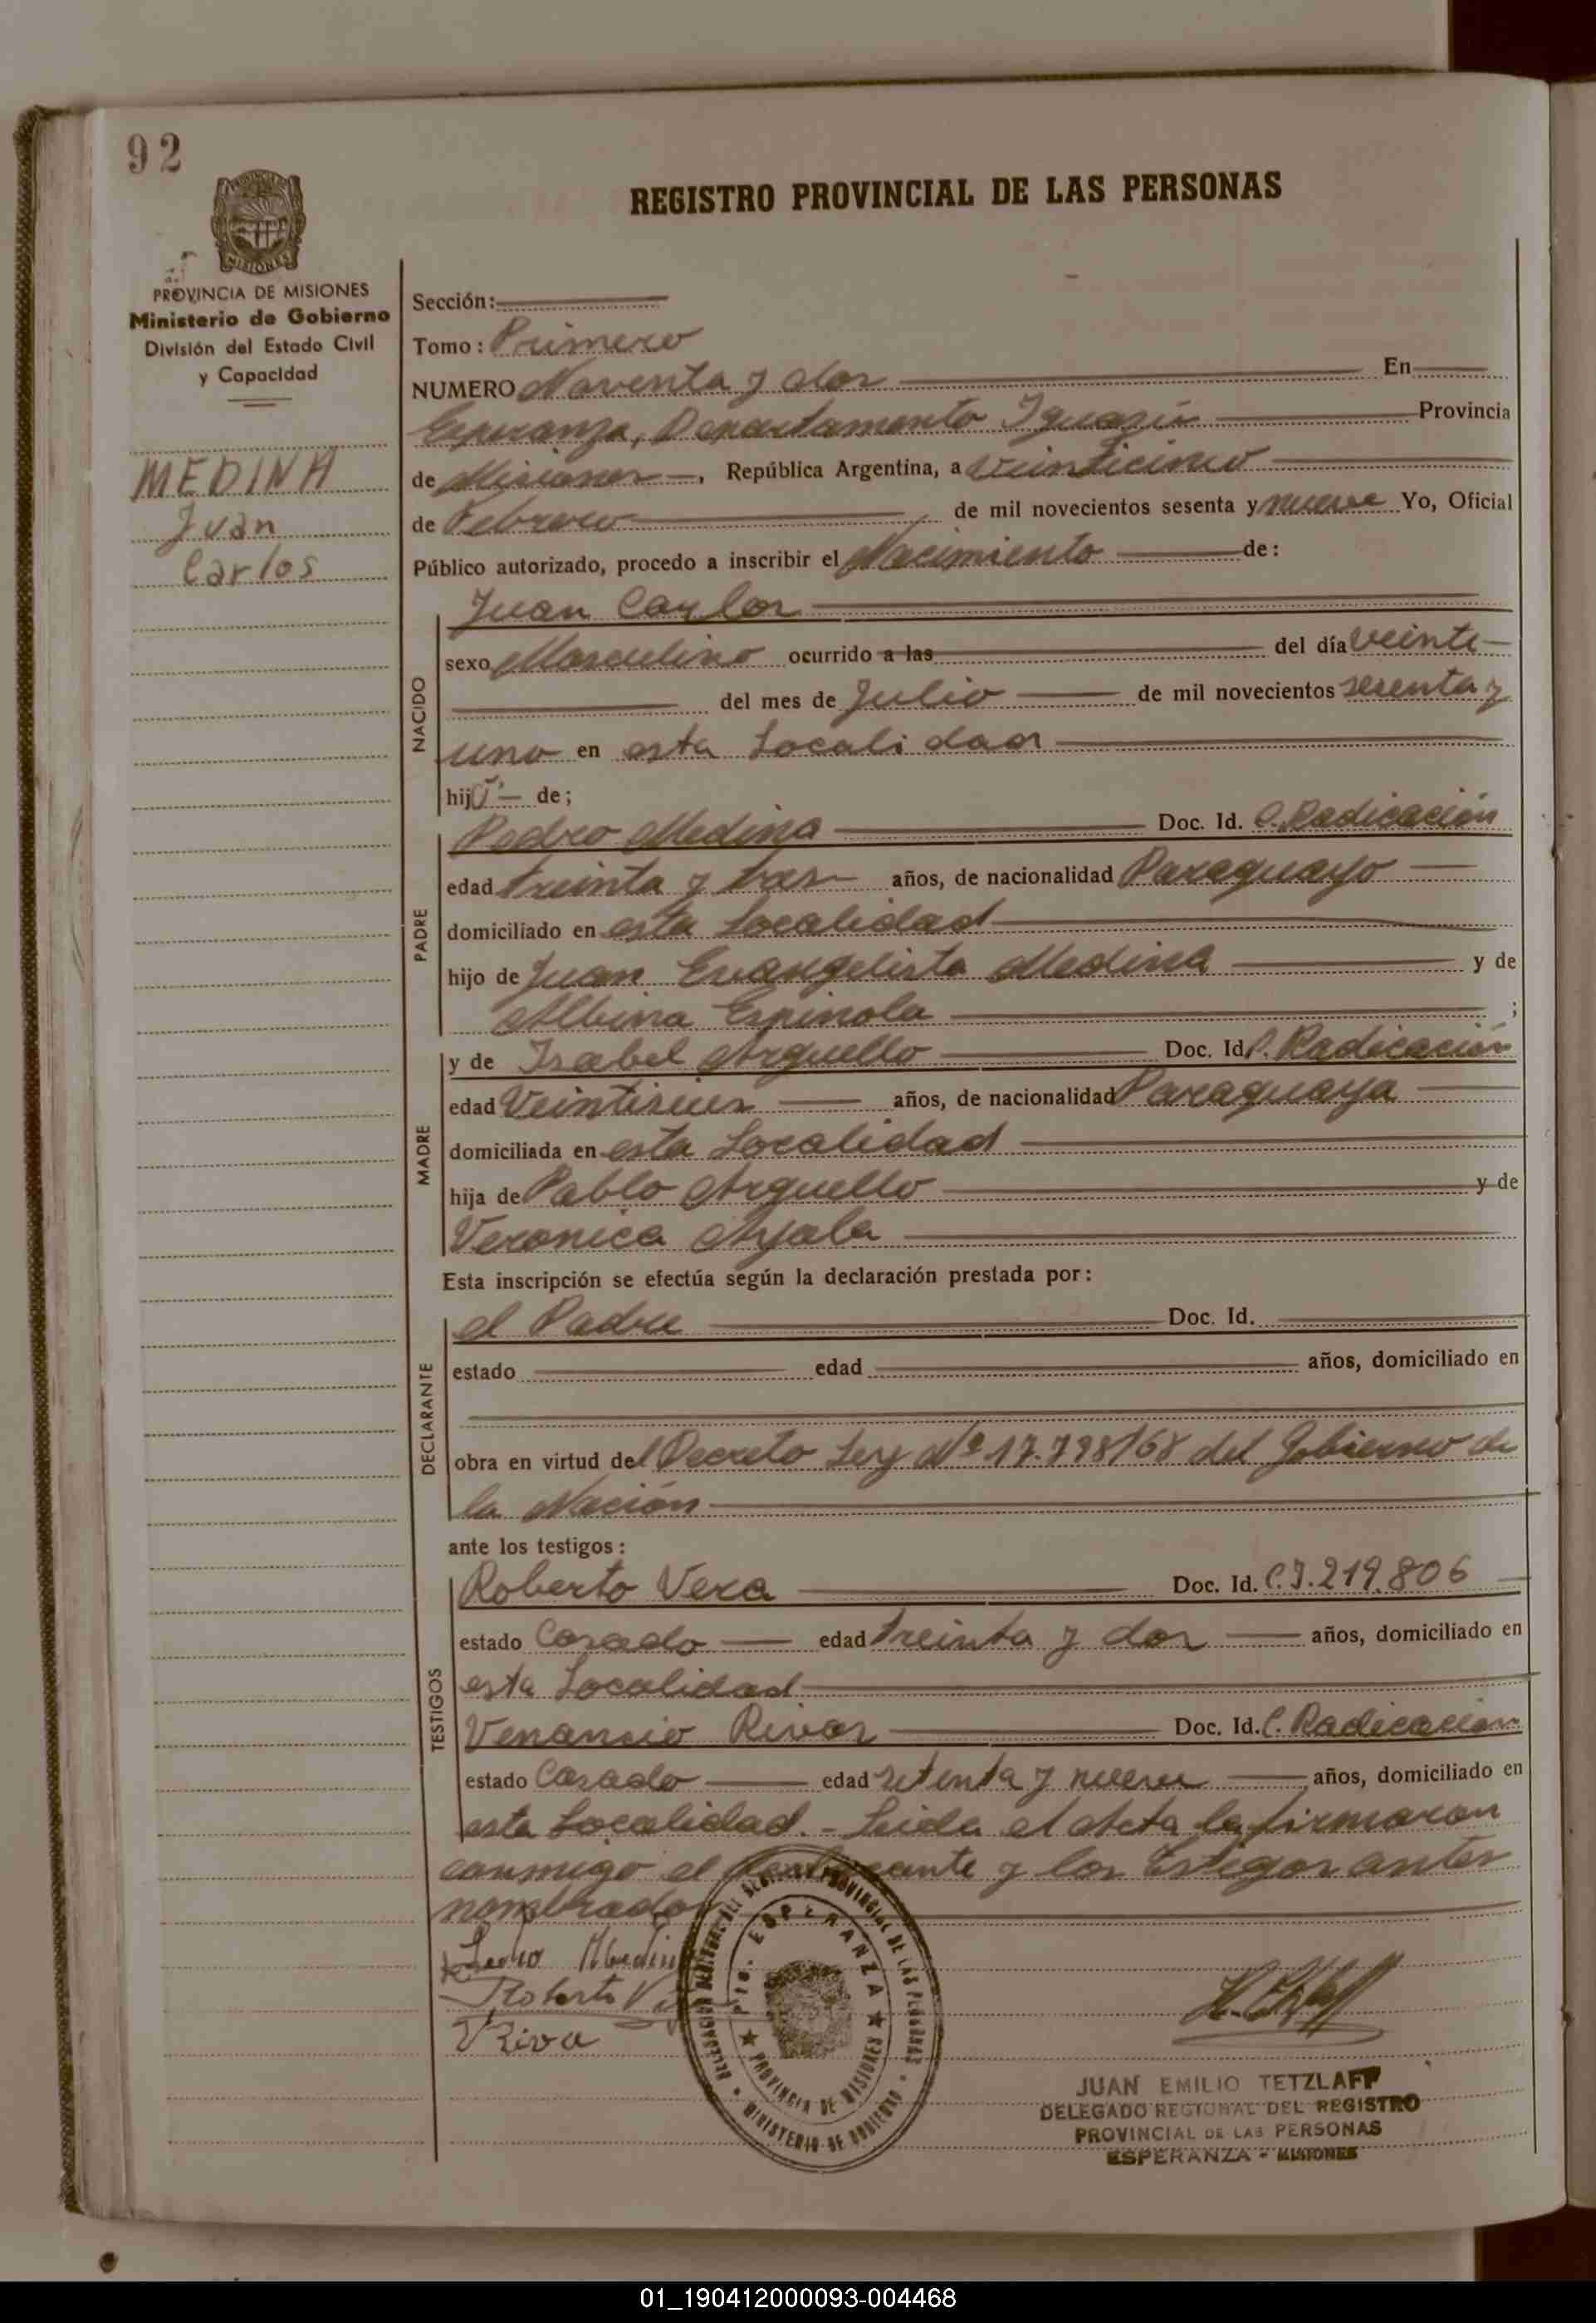 92
REGISTRO PROVINCIAL DE LAS PERSONAS
MISIONES
PROVINCIA DE MISIONES
Ministerio de Gobierno
División del Estado Civil
y Capacidad
MEDINA
Juan
Carlos
Sección:
Tomo: Primero
NUMERO Noventa y dos En
Esperanza, Departamento Iguazú Provincia
de Misiones, República Argentina, a Veinticinco
de Febrero de mil novecientos sesenta y nueve Yo, Oficial
Público autorizado, procedo a inscribir el Nacimiento de:
NACIDO
Juan Carlos
sexo Masculino ocurrido a las del día veinte
del mes de Julio de mil novecientos sesenta y
uno en esta Localidad
hijo de;
PADRE
Pedro Medina Doc. Id. C. Radicación
edad treinta y tres años, de nacionalidad Paraguayo
domiciliado en esta Localidad
hijo de Juan Evangelista Medina y de
Albina Espinola ;
MADRE
y de Isabel Arguello Doc. Id. C. Radicación
edad Veintiseis años, de nacionalidad Paraguaya
domiciliada en esta Localidad
hija de Pablo Arguello y de
Veronica Ayala
Esta inscripción se efectúa según la declaración prestada por:
DECLARANTE
el Padre Doc. Id.
estado edad años, domiciliado en
obra en virtud del Decreto Ley Nº 17.798/68 del Gobierno de
la Nación
ante los testigos:
TESTIGOS
Roberto Vera Doc. Id. C.I. 219.806
estado Casado edad treinta y dos años, domiciliado en
esta Localidad
Venancio Rivas Doc. Id. C. Radicación
estado Casado edad setenta y nueve años, domiciliado en
esta Localidad. - Leida el Acta la firmaron
conmigo el y los testigos antes
nombrados
Pedro Medin
Roberto
V Riva
DELEGACION REGIONAL DEL REGISTRO PROVINCIAL DE LAS PERSONAS
MINISTERIO DE GOBIERNO
Pto. ESPERANZA
PROVINCIA DE MISIONES
JUAN EMILIO TETZLAFF
DELEGADO REGIONAL DEL REGISTRO
PROVINCIAL DE LAS PERSONAS
ESPERANZA - MISIONES
01_190412000093-004468